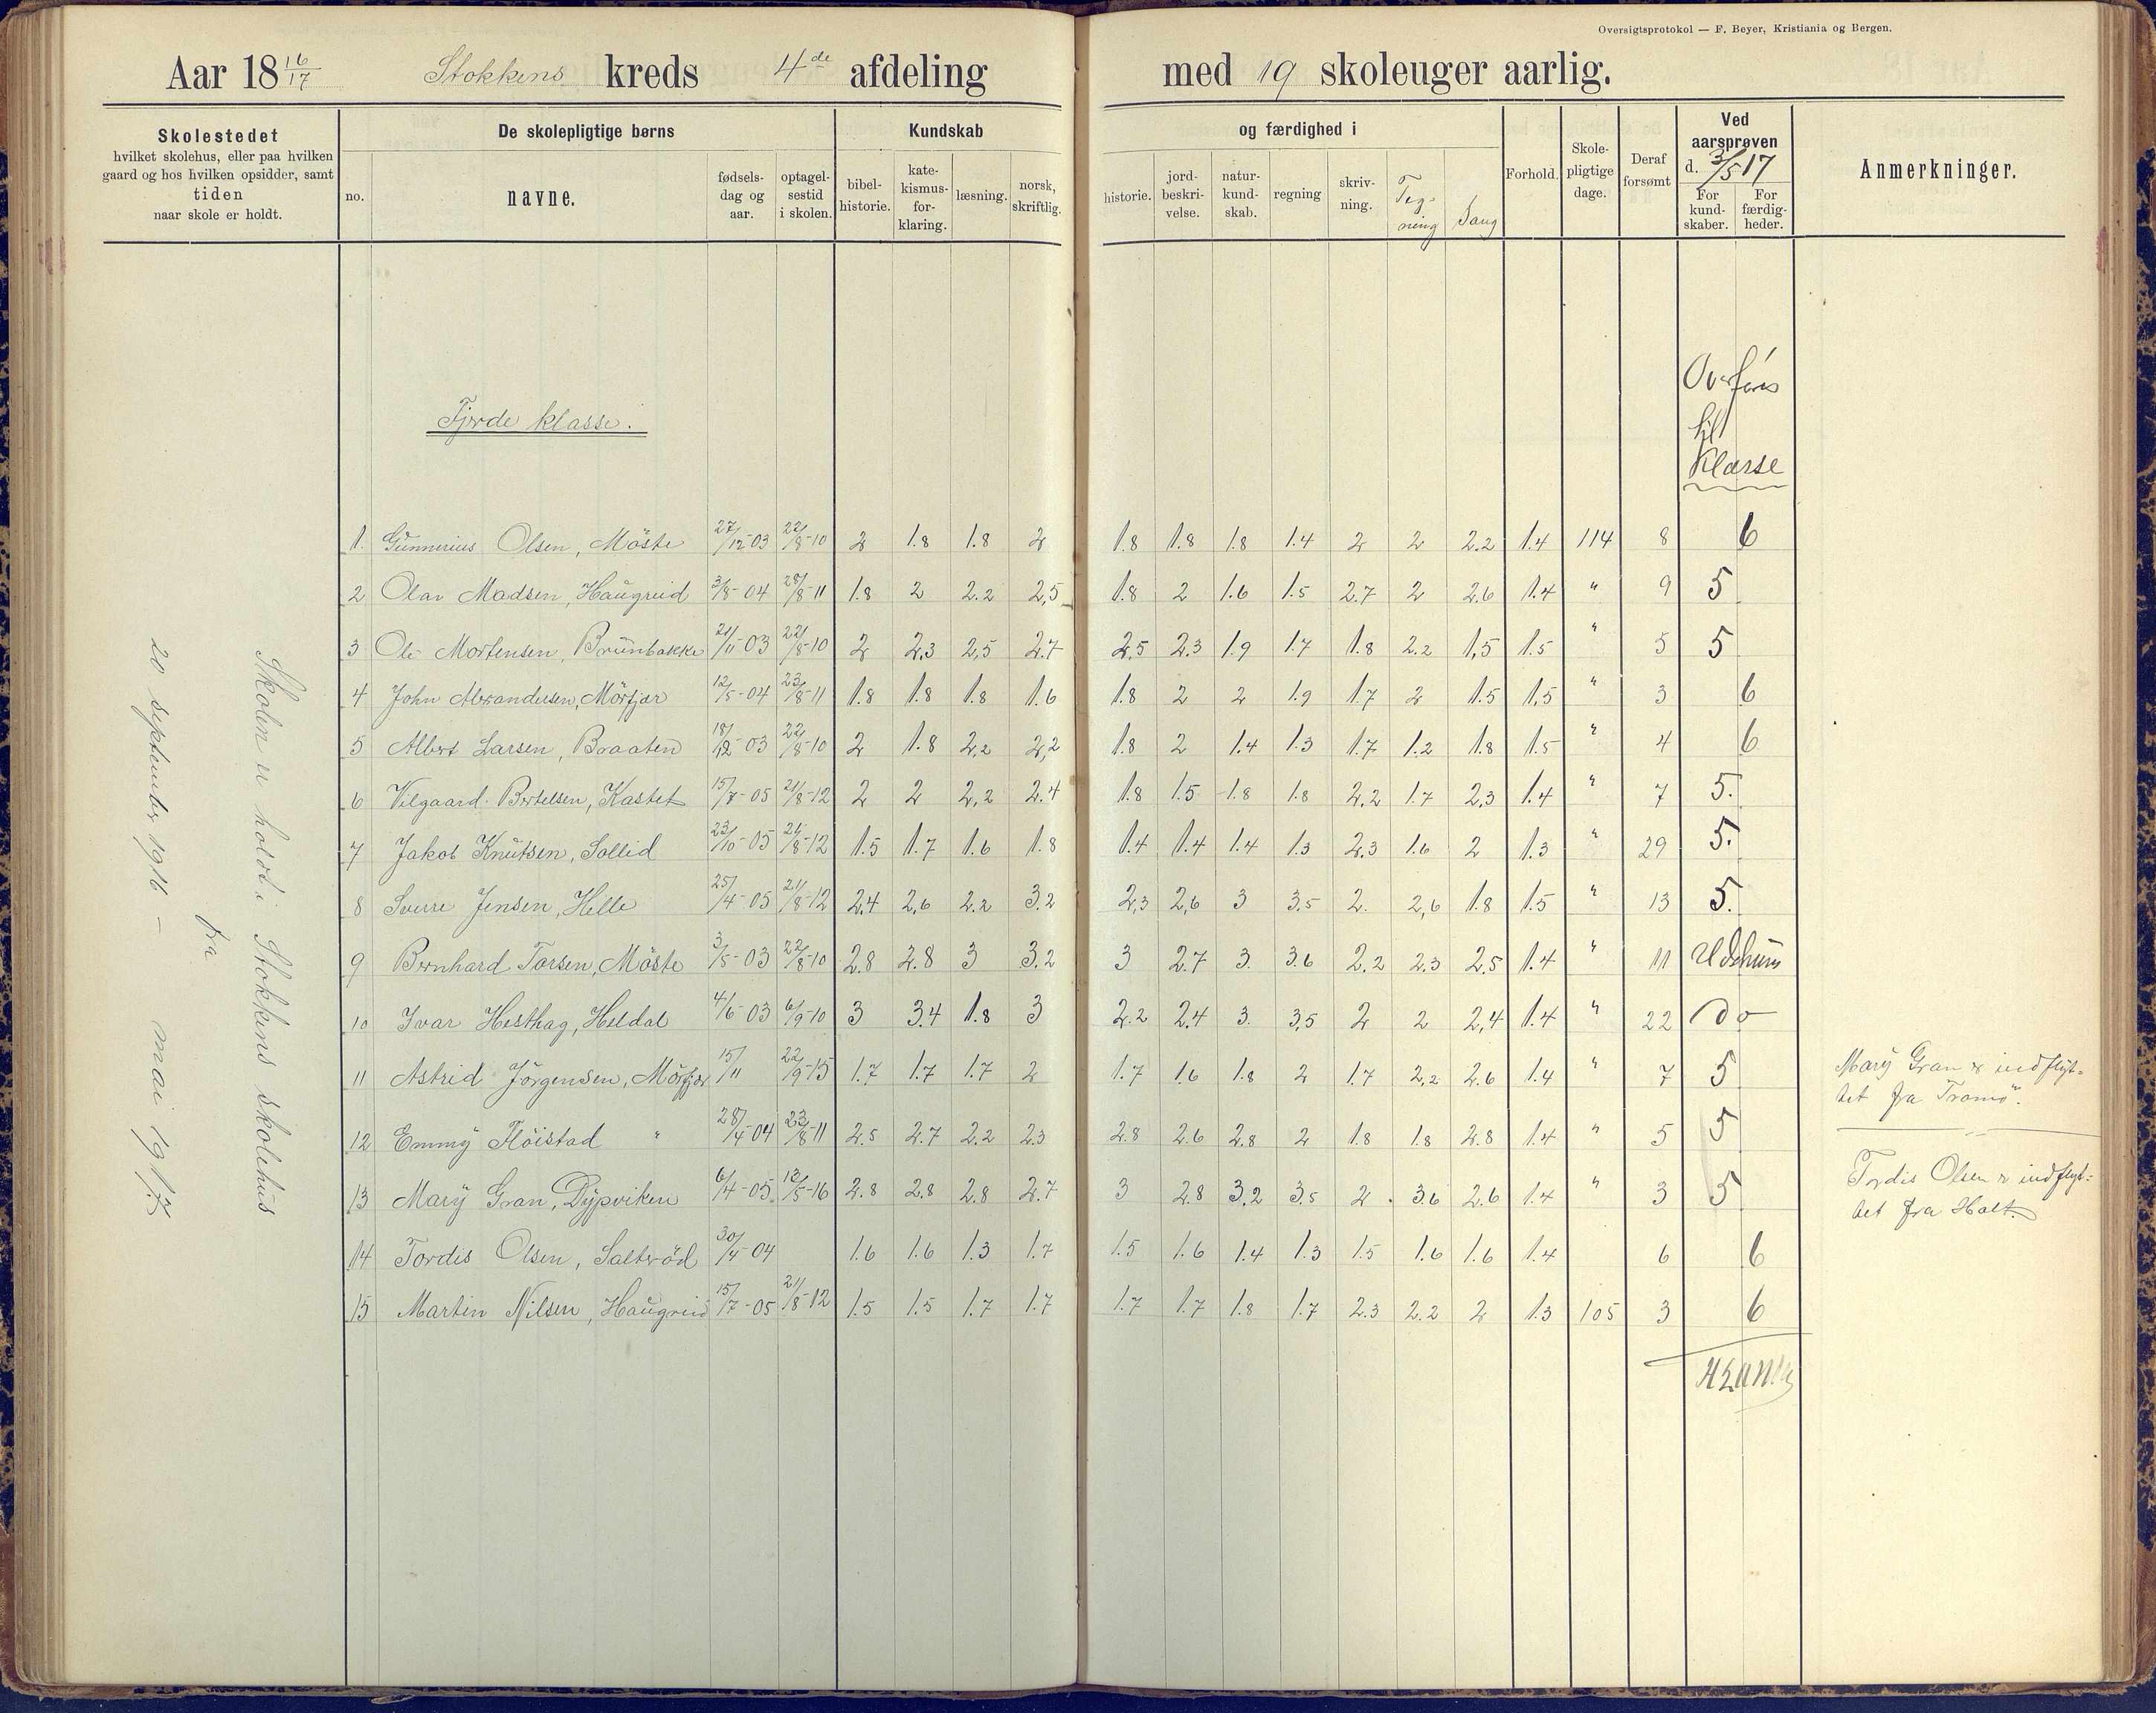 Oversigtsprotokol — F. Beyer, Kristiania og Bergen.
Aar 18 16/17 Stokkens kreds 4de afdeling med 19 skoleuger aarlig.
Skolestedet
hvilket skolehus, eller paa hvilken
gaard og hos hvilken opsidder, samt
tiden
naar skole er holdt.
De skolepligtige børns
no.
navne.
fødsels-
dag og
aar.
optagel-
sestid
i skolen.
Kundskab
bibel-
historie.
kate-
kismus-
for-
klaring.
læsning.
norsk,
skriftlig.
og færdighed i
historie.
jord-
beskri-
velse.
natur-
kund-
skab.
regning
skriv-
ning.
Teg-
ning
Sang
Forhold.
Skole-
pligtige
dage.
Deraf
forsømt
Ved
aarsprøven
d. 3/5 17
For
kund-
skaber.
For
færdig-
heder.
Anmerkninger.
Skolen er holdt i Stokkens skolehus
fra
20 september 1916 – mai 1917
Fjerde klasse.
Overføres
til
klasse
1. Gunnerius Olsen, Möste 27/12-03 22/8-10 2 1.8 1.8 2 1.8 1.8 1.8 1.4 2 2 2.2 1.4 114 8 6
2 Olav Madsen, Haugreid 3/8-04 28/8-11 1.8 2 2.2 2,5 1.8 2 1.6 1.5 2.7 2 2.6 1.4 " 9 5
3 Ole Mortensen, Brunbakke 21/11-03 22/8-10 2 2,3 2,5 2.7 2,5 2.3 1.9 1.7 1.8 2.2 1,5 1.5 " 5 5
4 John Alexandersen, Mörfjær 12/5-04 23/8-11 1.8 1.8 1.8 1.6 1.8 2 2 1.9 1.7 2 1.5 1,5 " 3 6
5 Albert Larsen, Braaten 18/12-03 22/8-10 2 1.8 2,2 2,2 1.8 2 1.4 1.3 1.7 1.2 1.8 1.5 " 4 6
6 Vilgaard Bertelsen, Kastet 15/7-05 21/8-12 2 2 2,2 2.4 1.8 1.5 1.8 1.8 2,2 1.7 2,3 1.4 " 7 5.
7 Jakob Knutsen, Sollid 23/10-05 21/8-12 1.5 1.7 1.6 1.8 1.4 1.4 1.4 1.3 2.3 1.6 2 1.3 " 29 5.
8 Sverre Jensen, Helle 25/4-05 21/8-12 2,4 2,6 2.2 3.2 2,3 2,6 3 3.5 2. 2,6 1.8 1.5 " 13 5.
9 Bernhard Torsen, Möste 3/5-03 22/8-10 2.8 2.8 3 3.2 3 2.7 3. 3.6 2.2 2.3 2.5 1.4 " 11
10 Ivar Hesthag, Heldal 4/6-03 6/9-10 3 3.4 1.8 3 2.2 2.4 3. 3,5 2 2 2,4 1.4 " 22 do
11 Astrid Jörgensen, Mörfjær 15/11 22/9-15 1.7 1.7 1.7 2 1.7 1.6 1.8 2 1.7 2,2 2.6 1.4 " 7 5
12 Emmy Flöistad " 28/4-04 23/8-11 2.5 2.7 2.2 2.3 2.8 2.6 2.8 2 1.8 1.8 2.8 1.4 " 5 5
13 Mary Gran, Dypviken 6/4-05 12/5-16 2.8 2.8 2.8 2.7 3 2.8 3.2 3.5 2. 3.6 2.6 1.4 " 3 5
14 Tordis Olsen, Saltröd 30/4-04 1.6 1.6 1.3 1.7 1.5 1.6 1.4 1.3 1.5 1.6 1.6 1.4 6 6
15 Martin Nilsen, Haugreid 15/7-05 21/8-12 1.5 1.5 1.7 1.7 1.7 1.7 1.8 1.7 2.3 2.2 2 1.3 105 3 6
Mary Gran er indflyt-
tet fra Tromö.
Tordis Olsen er indflyt-
tet fra Holt.